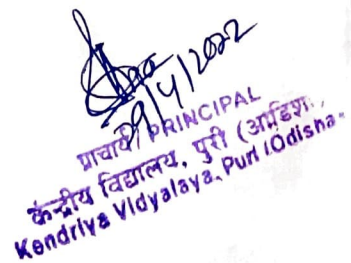 29/4/2022
प्राचार्य/PRINCIPAL
केंद्रीय विद्यालय, पुरी
Kendriya Vidyalaya, Puri (Odisha